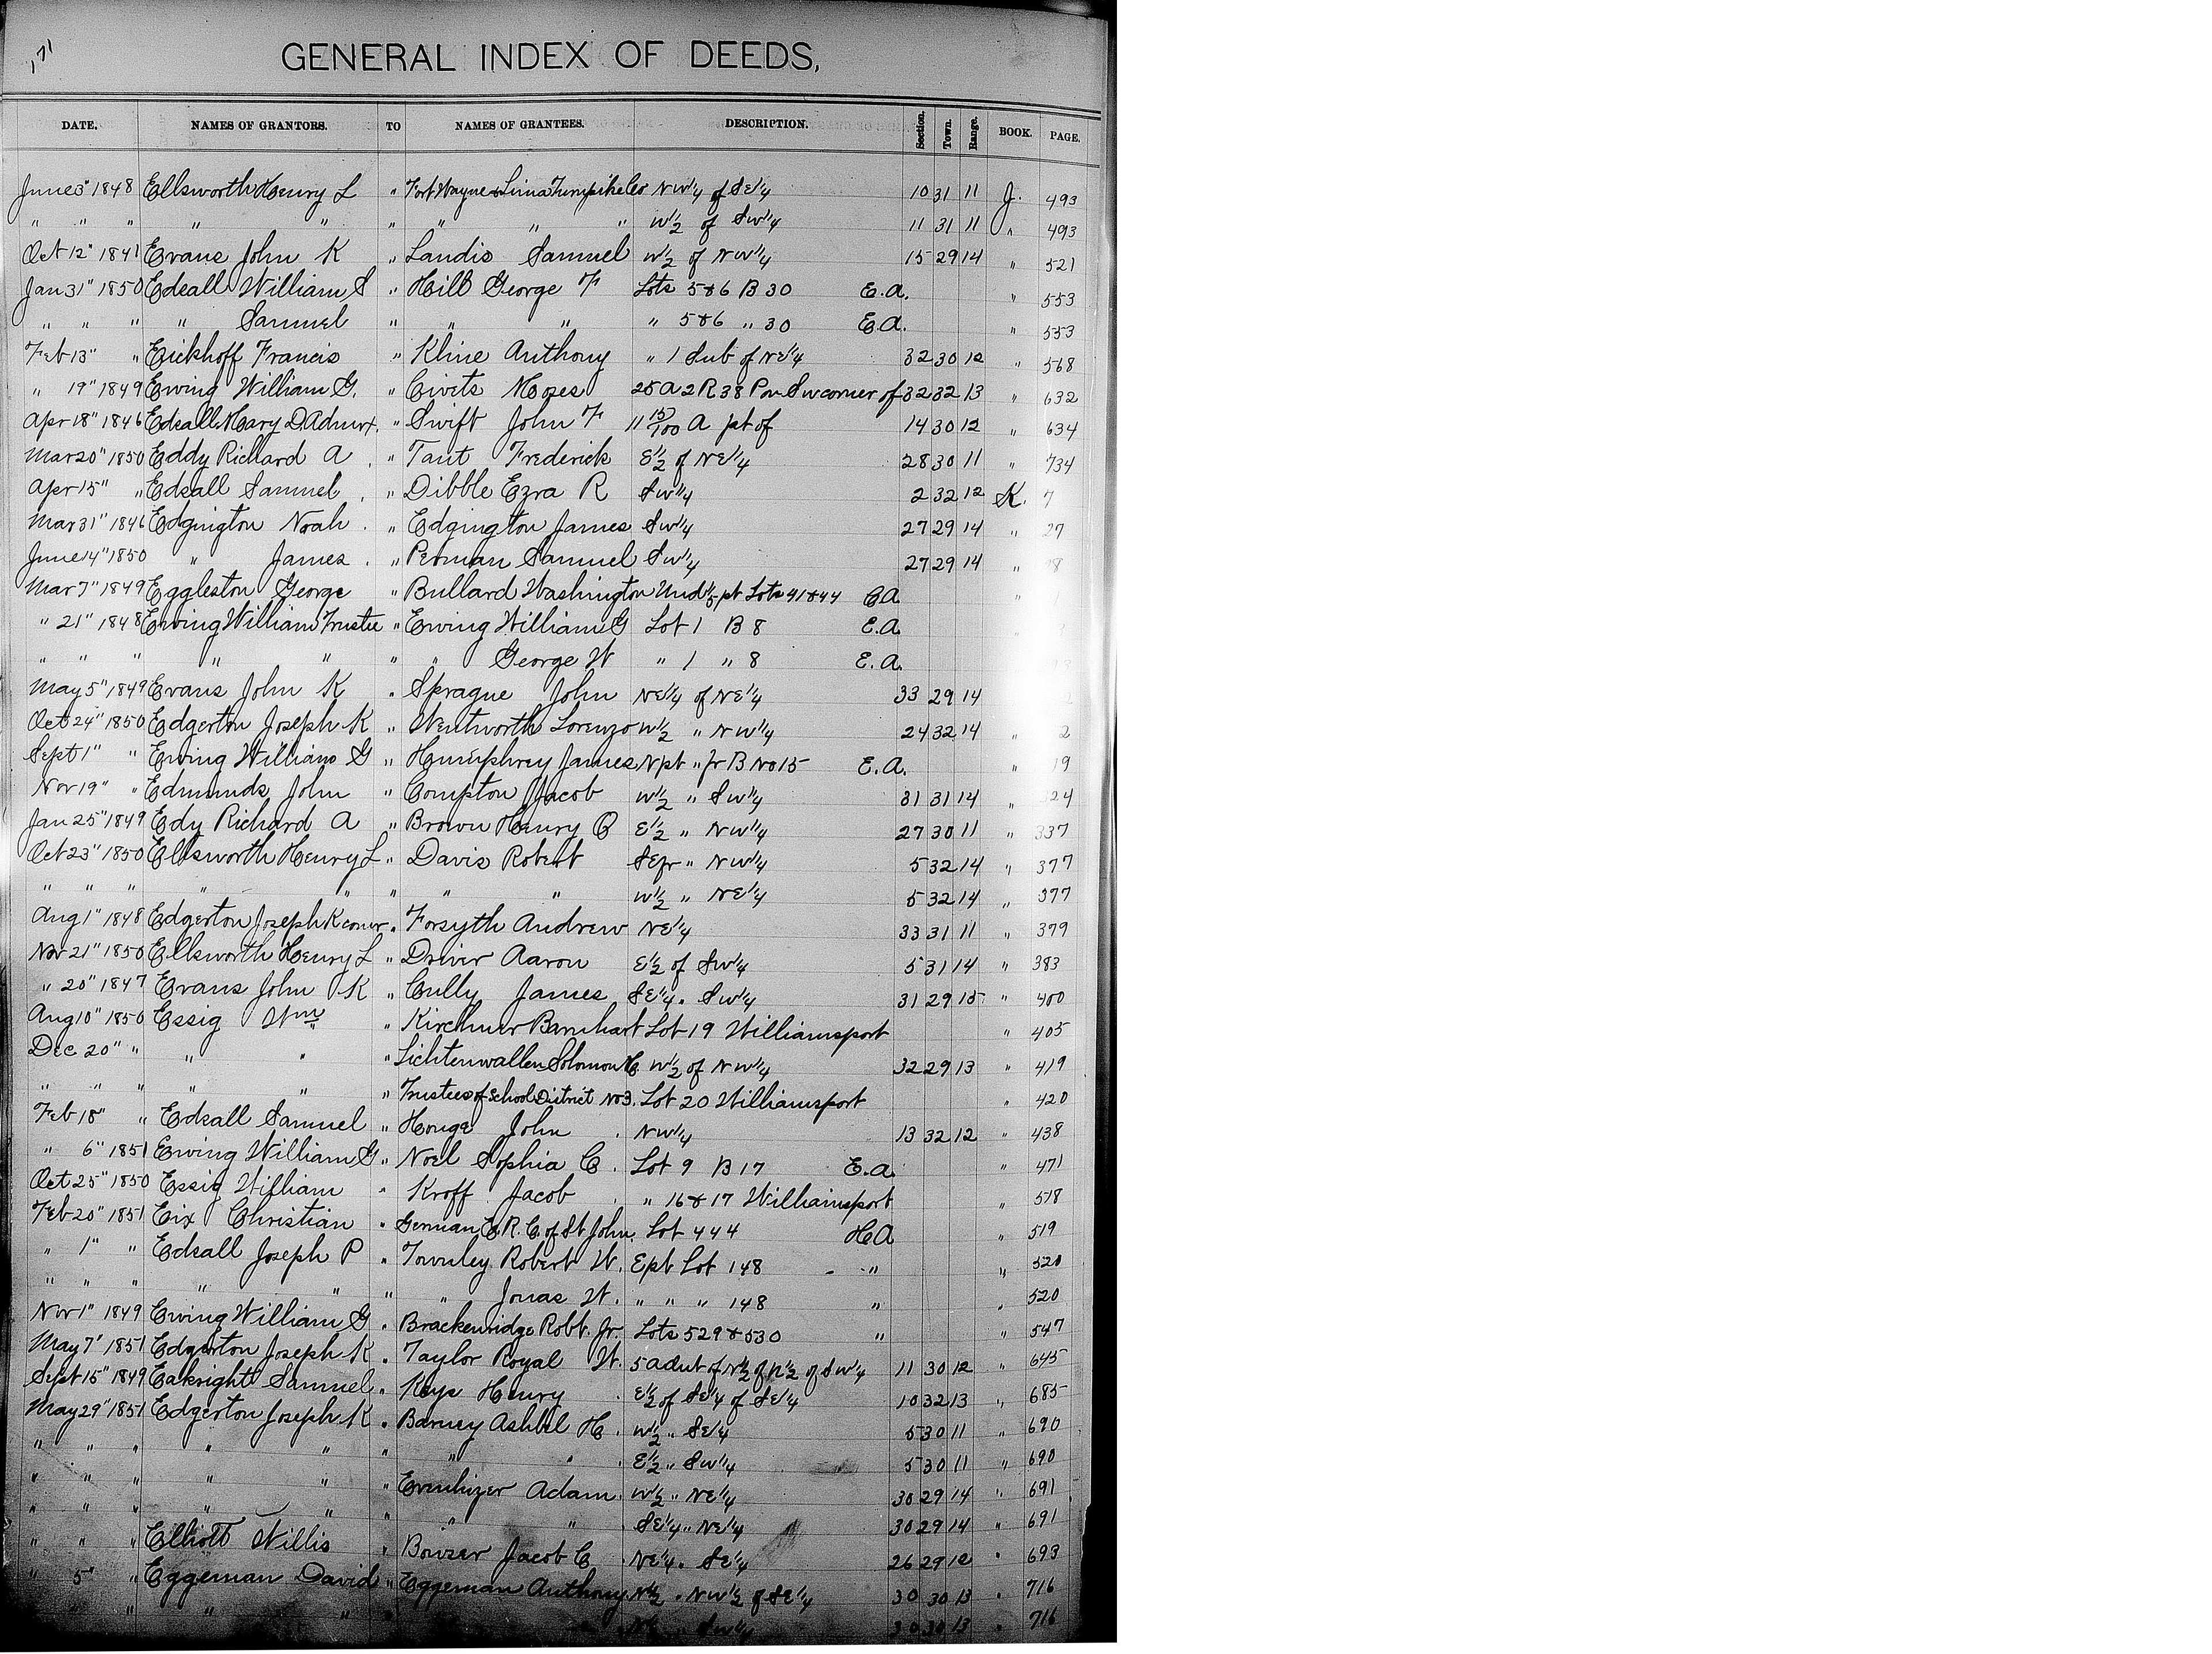 171
GENERAL INDEX OF DEEDS,
DATE. NAMES OF GRANTORS. TO NAMES OF GRANTEES. DESCRIPTION. Section. Town. Range. BOOK. PAGE.
June 3" 1848 Ellsworth Henry L " Fort Wayne & Lima Turnpike Co NW1/4 of SE1/4 10 31 11 J. 493
" " " " " " " " " W1/2 of SW1/4 11 31 11 " 493
Oct 12" 1841 Evans John K " Landis Samuel W1/2 of NW1/4 15 29 14 " 521
Jan 31" 1850 Edsall William S " Hill George F Lots 5&6 B 30 E.A. " 553
" " " " Samuel " " " " 5&6 " 30 E.A. " 553
Feb 13" " Eickhoff Francis " Kline Anthony " 1 Sub of NE1/4 32 30 12 " 568
" 19" 1849 Ewing William G. " Civits Moses 25 A 2 R 38 P on SW corner of 32 32 13 " 632
Apr 18" 1846 Edsall Mary D Admrx. " Swift John F 11 15/100 A pt of 14 30 12 " 634
Mar 20" 1850 Eddy Richard A " Taut Frederick E1/2 of NE1/4 28 30 11 " 734
Apr 15" " Edsall Samuel " Dibble Ezra R SW1/4 2 32 12 K. 7
Mar 31" 1846 Edgington Noah " Edgington James SW1/4 27 29 14 " 27
June 14" 1850 " James " Penman Samuel SW1/4 27 29 14 " 8
Mar 7" 1849 Eggleston George " Bullard Washington Und 1/5 pt Lots 41&44 C A "
" 21" 1848 Ewing William Trustee " Ewing William G Lot 1 B 8 E.A.
" " " " " " " George W " 1 " 8 E.A.
May 5" 1849 Evans John K " Sprague John NE1/4 of NE1/4 33 29 14 2
Oct 24" 1850 Edgerton Joseph K " Wentworth Lorenzo W1/2 " NW1/4 24 32 14 " 2
Sept 1" " Ewing William G " Humphrey James N pt " fr B No 15 E.A. " 19
Nov 19" " Edmunds John " Compton Jacob W1/2 " SW1/4 31 31 14 " 324
Jan 25" 1849 Edy Richard A " Brown Henry C E1/2 " NW1/4 27 30 11 " 337
Oct 23" 1850 Ellsworth Henry L " Davis Robert SE fr " NW1/4 5 32 14 " 377
" " " " " " " " W1/2 " NE1/4 5 32 14 " 377
Aug 1" 1848 Edgerton Joseph K comr " Forsyth Andrew NE1/4 33 31 11 " 379
Nov 21" 1850 Ellsworth Henry L " Driver Aaron E1/2 of SW1/4 5 31 14 " 383
" 20" 1847 Evans John K " Cully James SE1/4 " SW1/4 31 29 15 " 400
Aug 10" 1850 Essig Wm " Kirchner Barnhart Lot 19 Williamsport " 405
Dec 20" " " " " Lichtenwallen Solomon H W1/2 of NW1/4 32 29 13 " 419
" " " " " " Trustees of School District No 3. Lot 20 Williamsport " 420
Feb 18" " Edsall Samuel " Houge John NW1/4 13 32 12 " 438
" 6" 1851 Ewing William G " Noel Sophia C. Lot 9 B 17 E.A. " 471
Oct 25" 1850 Essig William " Kroff Jacob " 16 & 17 Williamsport " 518
Feb 20" 1851 Eix Christian " German E.R.C. of St John. Lot 444 H A " 519
" 1" " Edsall Joseph P " Townley Robert W. E pt Lot 148 " " 520
" " " " " " " Jonas W. " " " 148 " " 520
Nov 1" 1849 Ewing William G " Brackenridge Robt. Jr. Lots 529 & 530 " " 547
May 7" 1851 Edgerton Joseph K " Taylor Royal W. 5 a d out of N1/2 of N1/2 of SW1/4 11 30 12 " 645
Sept 15" 1849 Eakright Samuel " Keys Henry E1/2 of SE1/4 of SE1/4 10 32 13 " 685
May 29" 1851 Edgerton Joseph K " Barney Ashbel H. W1/2 " SE1/4 5 30 11 " 690
" " " " " " " " E1/2 " SW1/4 5 30 11 " 690
" " " " " " Evenhizer Adam W1/2 " NE1/4 30 29 14 " 691
" " " " " " " " SE1/4 " NE1/4 30 29 14 " 691
" " " Elliott Willis " Bowser Jacob C NE1/4 " SE1/4 26 29 12 " 693
" 5" " Eggeman David " Eggeman Anthony N1/2 " NW1/2 of SE1/4 30 30 13 " 716
" " " " SW1/4 30 30 13 " 716